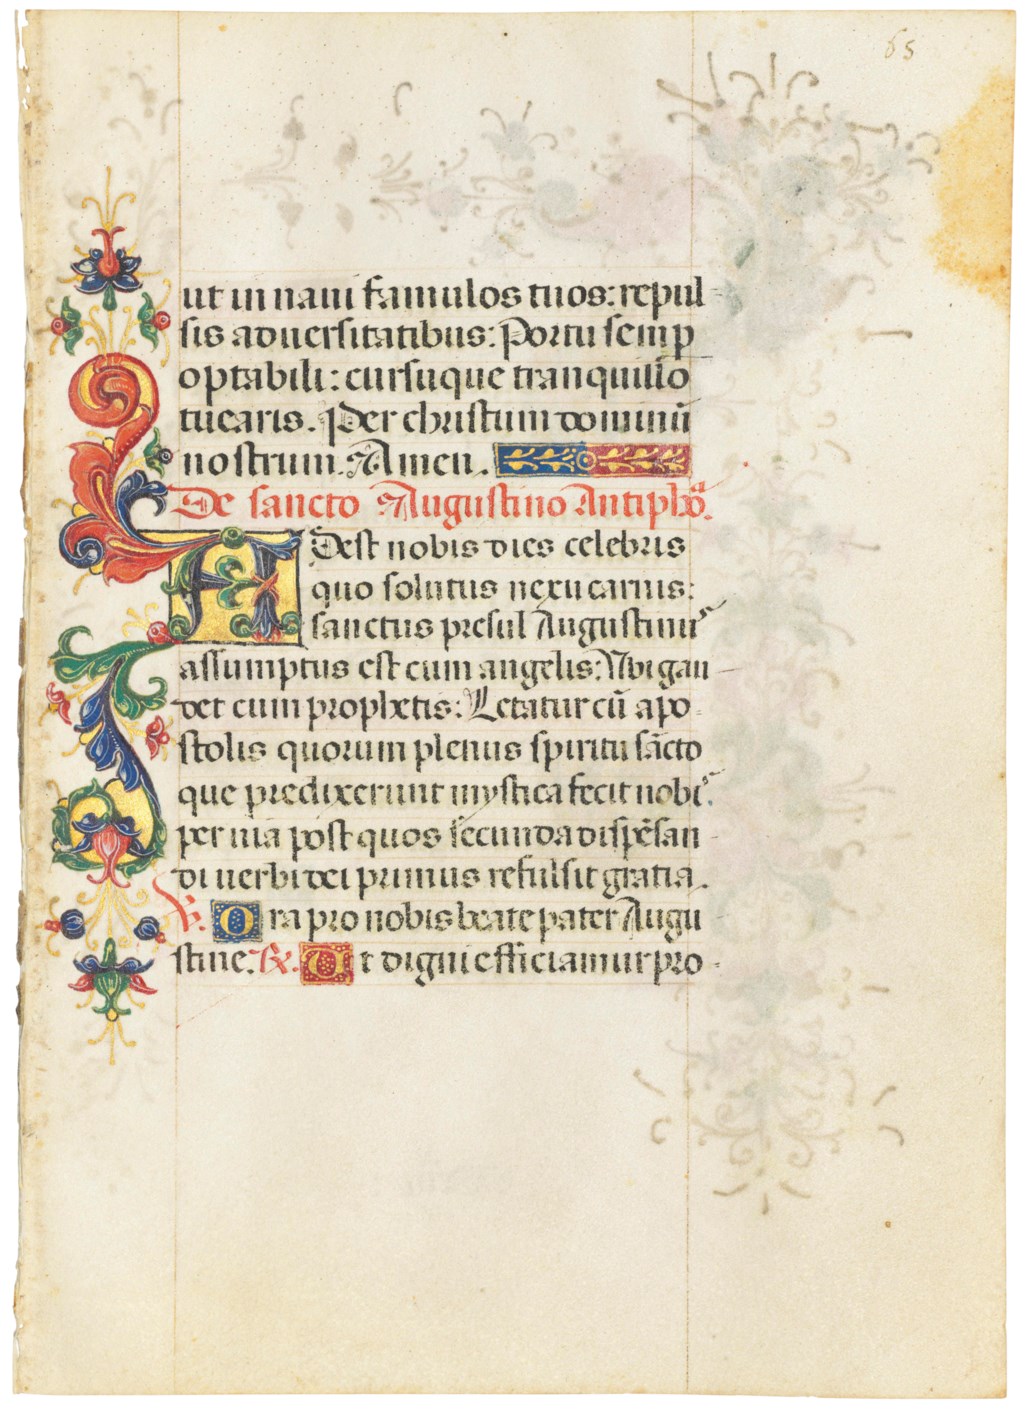 65
ut in naui famulos tuos: repul-
sis aduersitatibus: Portu semp
optabili: cursuque tranquillo
tuearis. Per christum dominū
nostrum. Amen.
De sancto Augustino Antiphōa.
ADest nobis dies celebris
quo solutus nexu carnis:
sanctus presul Augustinus
assumptus est cum angelis: Vbi gau-
det cum prophetis: Letatur cū apo-
stolis quorum plenus spiritu sācto
que predixerunt mystica fecit nobis
peruia post quos secunda dispēsan
di uerbi dei primus refulsit gratia.
℣. Ora pro nobis beate pater Augu
stine. ℟. Vt digni efficiamur pro-